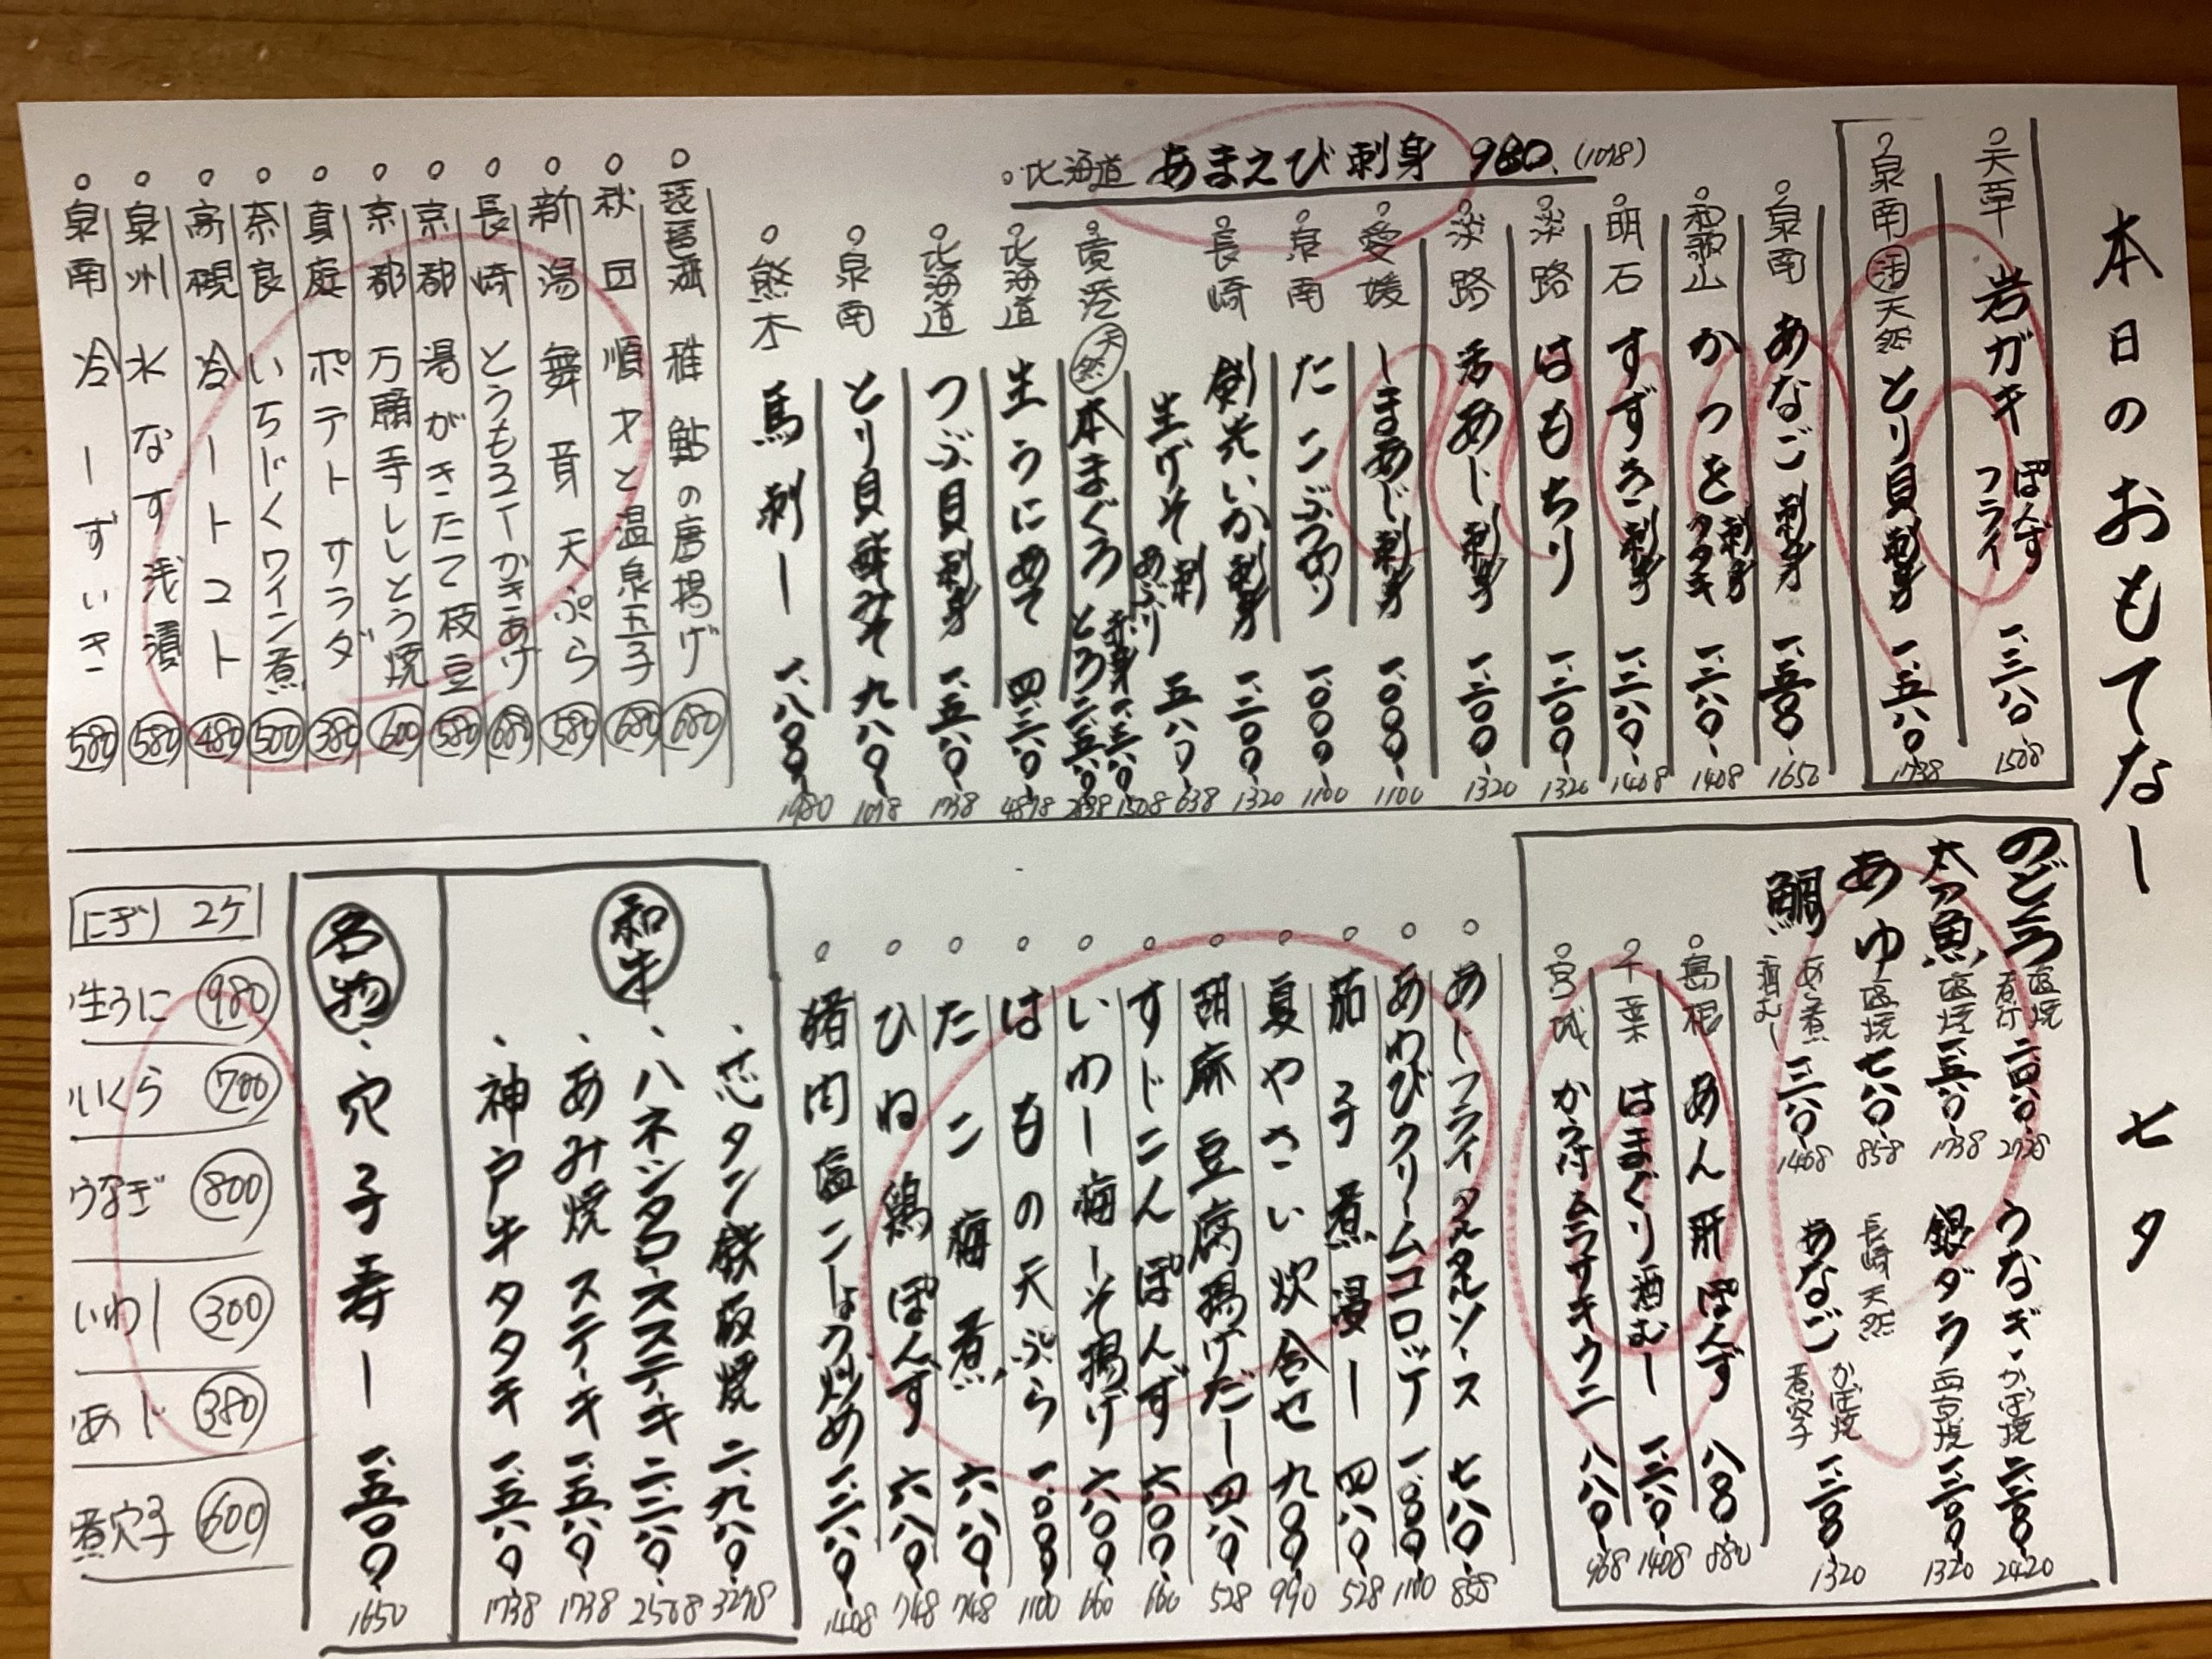 本日のおもてなし 七夕
天草 岩ガキ ぽんず フライ 一、三八〇 1508
泉南 活 天然 とり貝 刺身 一、五八〇 1738
泉南 あなご 刺身 一、五〇〇 1650
和歌山 かつを 刺身 タタキ 一、二八〇 1408
明石 すずき 刺身 一、二八〇 1408
淡路 はもちり 一、二〇〇 1320
淡路 活あじ 刺身 一、二〇〇 1320
愛媛 しまあじ 刺身 一、〇〇〇 1100
泉南 たこぶつ切り 一、〇〇〇 1100
長崎 剣先いか 刺身 一、二〇〇 1320
生げそ 刺 あぶり 五八〇 638
天然 本まぐろ 赤身 一、三八〇 1508
とろ 二、五八〇 2838
北海道 あまえび刺身 980 (1078)
北海道 生うに あて 四、三八〇
北海道 つぶ貝 刺身 一、五八〇 1738
泉南 とり貝酢みそ 九八〇 1078
熊本 馬刺し 一、八〇〇 1980
琵琶湖 稚鮎の唐揚げ 680
秋田 順才と温泉玉子 680
新潟 舞茸天ぷら 580
長崎 とうもろこしかきあげ 680
京都 湯がきたて枝豆 580
京都 万願寺ししとう焼 600
真庭 ポテトサラダ 380
奈良 いちじくワイン煮 500
高槻 冷しトマト 480
泉州 水なす浅漬 580
泉南 冷しずいき 580
のどぐろ 塩焼 煮付
太刀魚 塩焼 一、五八〇 1738
あゆ 塩焼 七八〇 858
鯛 あら煮 酒むし 一、二八〇 1408
うなぎ かば焼 二、二〇〇 2420
銀ダラ 西京焼 一、二〇〇 1320
長崎 天然 あなご かば焼 煮穴子 一、二〇〇 1320
島根 あん肝ぽんず 八〇〇 880
千葉 はまぐり酒むし 一、二八〇 1408
宮城 から付ムラサキウニ 八八〇 968
あじフライタルタルソース 七八〇 858
あわびクリームコロッケ 一、〇〇〇 1100
茄子煮浸し 四八〇 528
夏やさい炊合せ 九〇〇 990
胡麻豆腐揚げだし 四八〇 528
すじこんぽんず 六〇〇 660
いわし梅しそ揚げ 六〇〇 660
はもの天ぷら 一、〇〇〇 1100
たこ梅煮 六八〇 748
ひね鶏ぽんず 六八〇 748
猪肉塩こしょう炒め 一、二八〇 1408
和牛
、芯タン鉄板焼 二、九八〇 3278
、ハネシタロースステーキ 二、二八〇 2508
、あみ焼ステーキ 一、五八〇 1738
、神戸牛タタキ 一、五八〇 1738
名物
、穴子寿し 一、五〇〇 1650
にぎり 2ケ
生うに 980
いくら 700
うなぎ 800
いわし 300
あじ 380
煮穴子 600